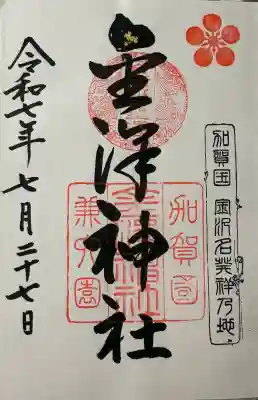 加賀国 金沢名発祥乃地
金澤神社
加賀国
金澤神社
兼六園
令和七年七月二十七日